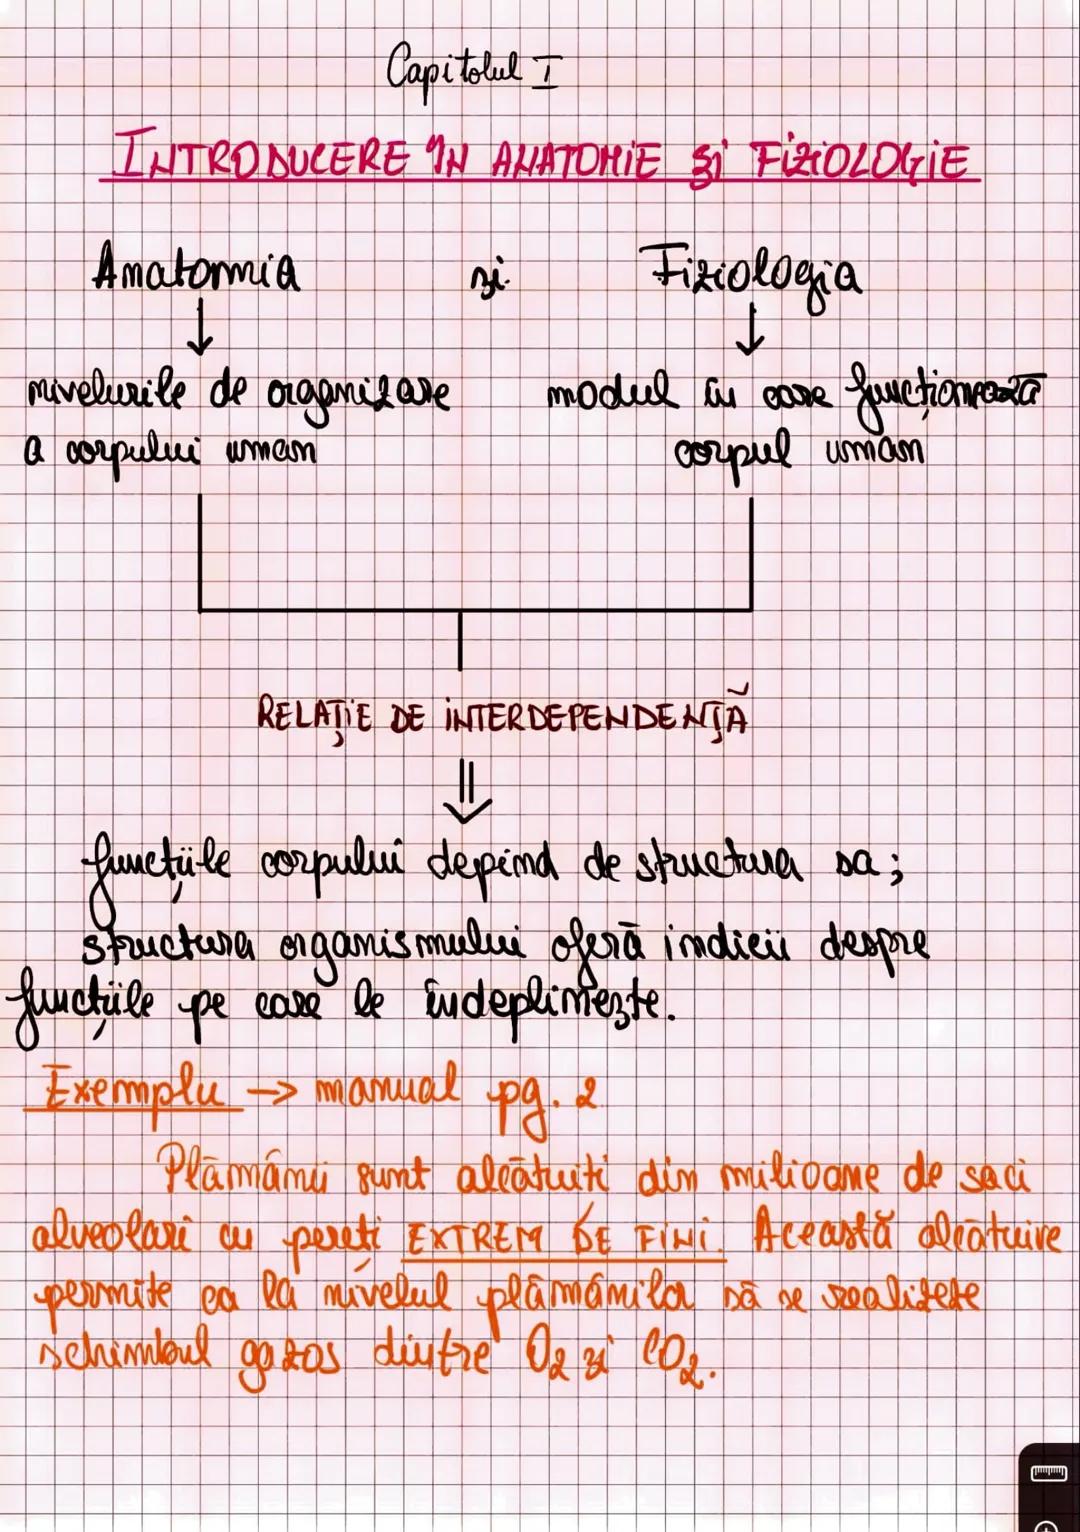 Capitolul I
INTRODUCERE ÎN ANATOMIE și FIZIOLOGIE
Anatomia și Fiziologia
nivelurile de organizare modul în care funcționează
a corpului uman corpul uman
RELAȚIE DE INTERDEPENDENȚĂ
funcțiile corpului depind de structura sa;
structura organismului oferă indicii despre
funcțiile pe care le îndeplinește.
Exemplu → manual pg. 2
Plămânii sunt alcătuiți din milioane de saci
alveolari cu pereți EXTREM DE FINI. Această alcătuire
permite ca la nivelul plămânilor să se realizeze
schimbul gazos dintre O2 și CO2.